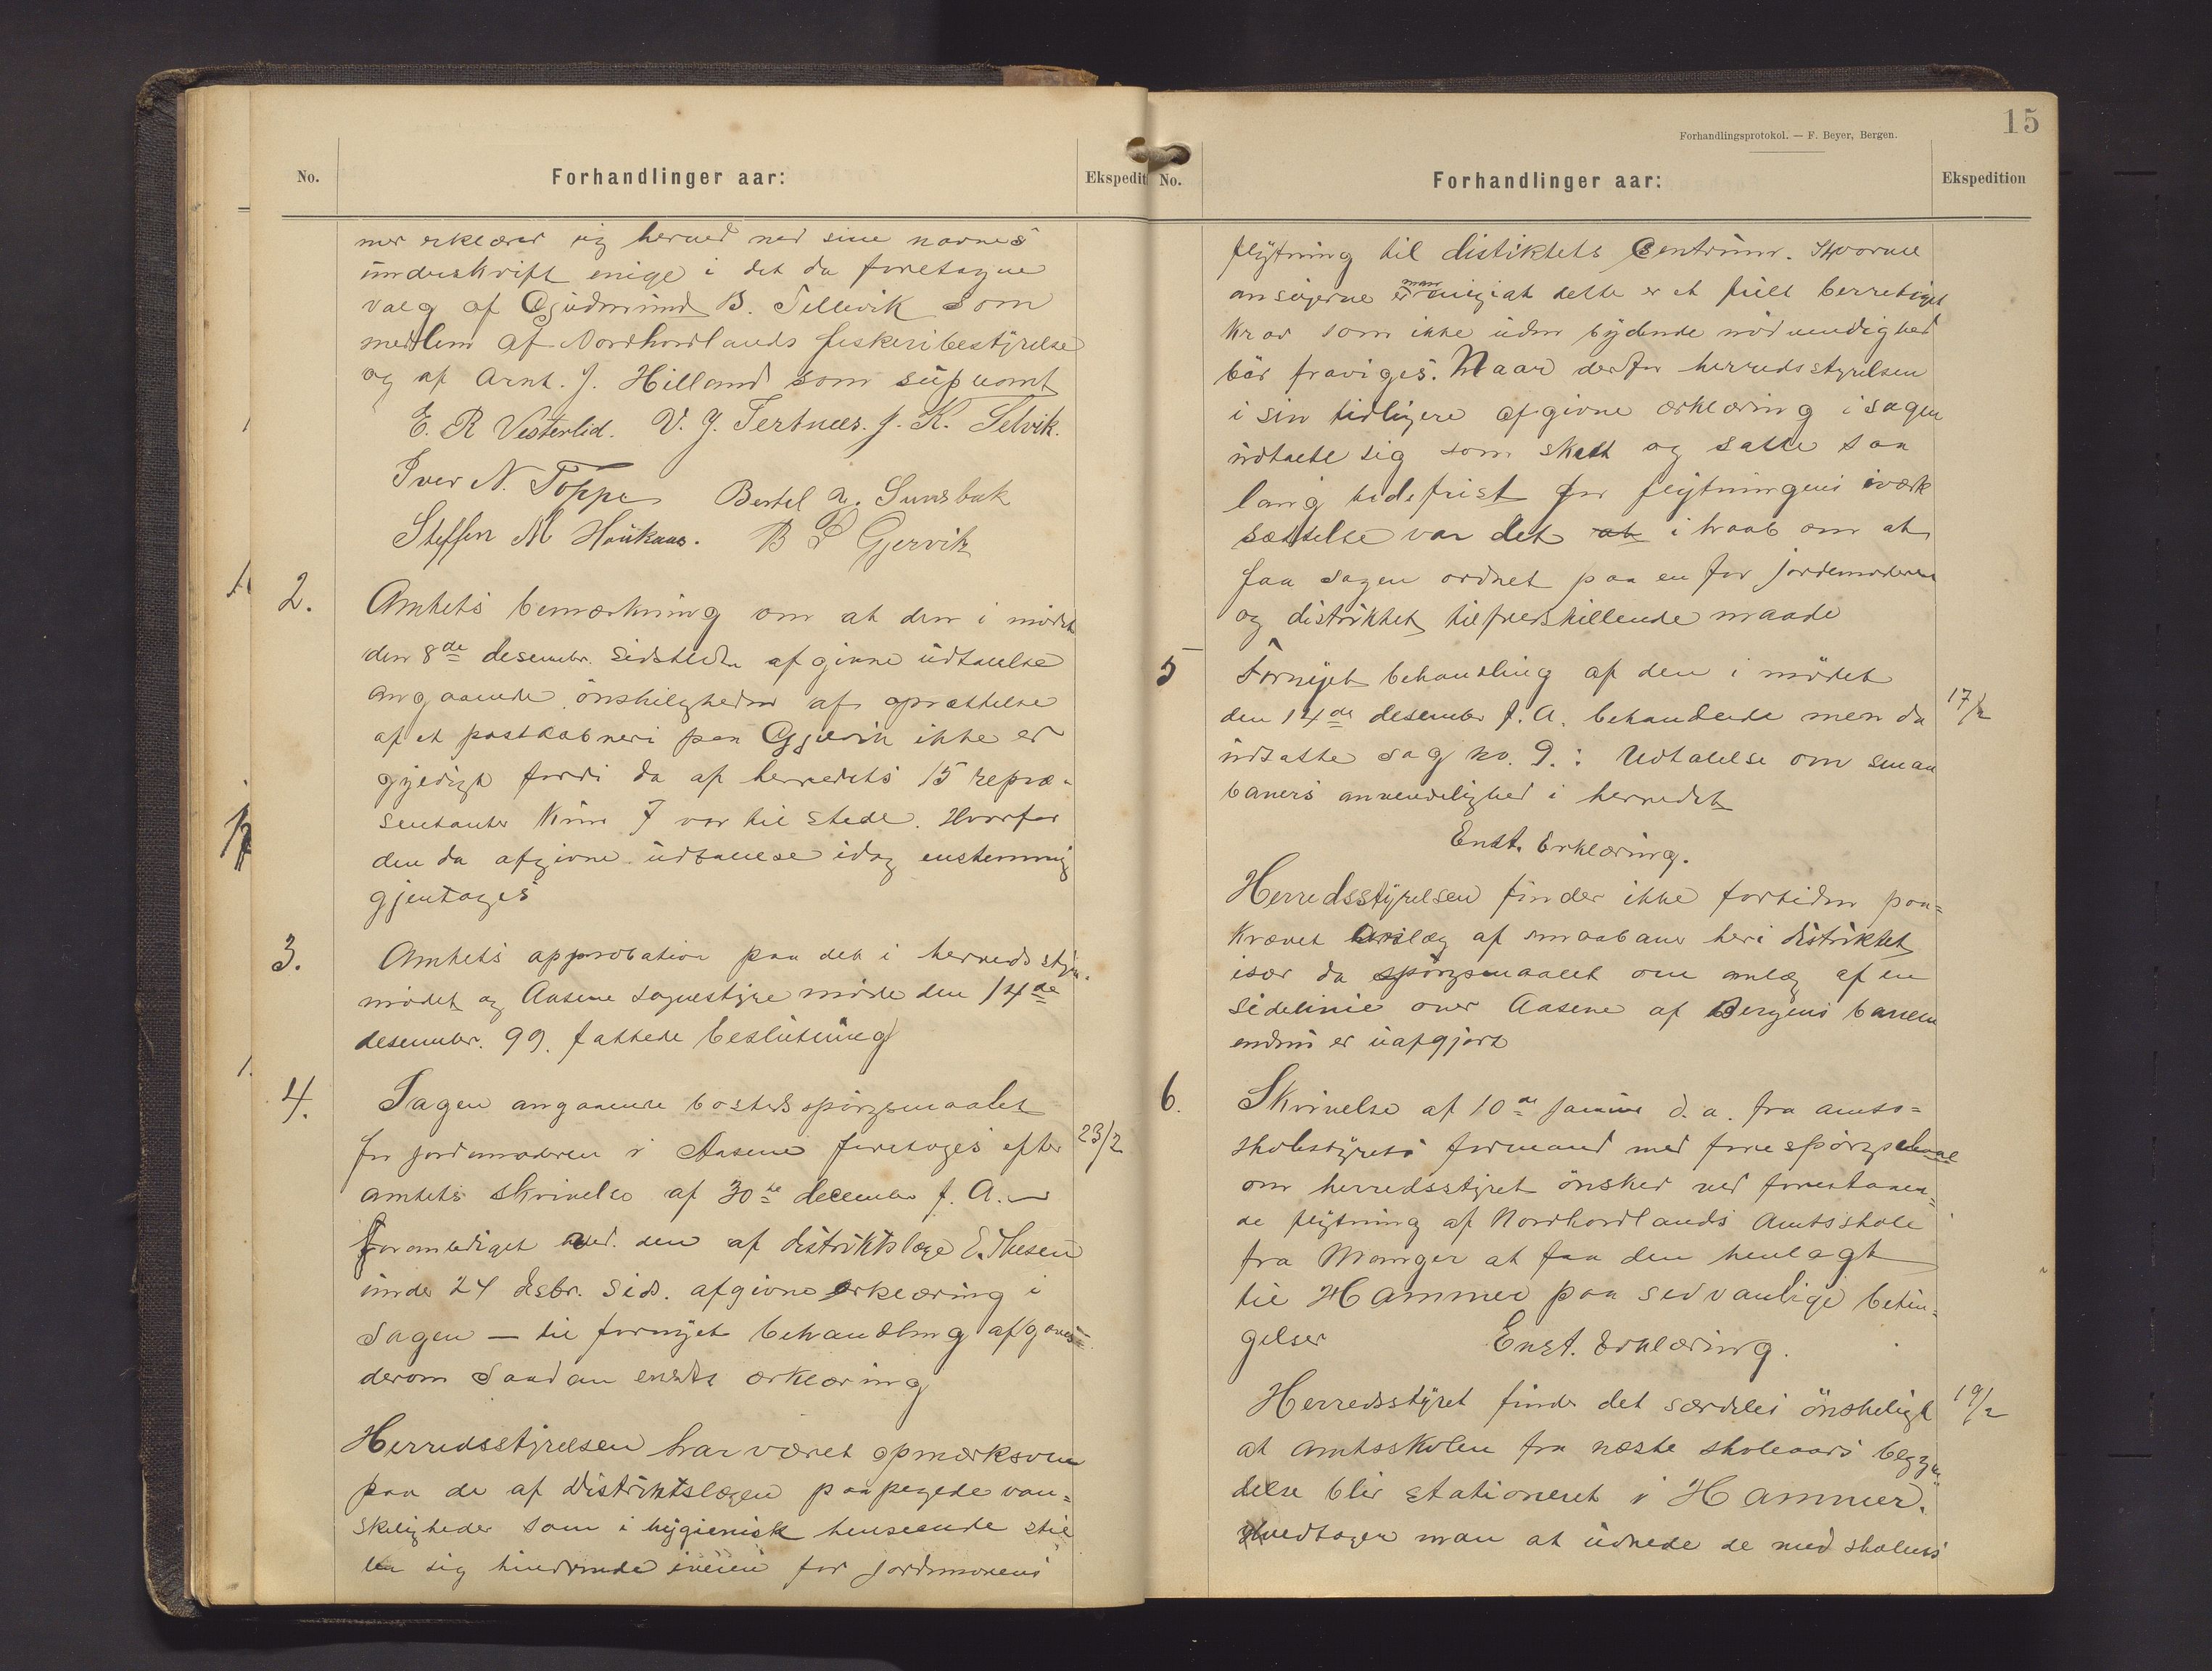 No.
Forhandlinger aar:
Ekspedit
mer erklærer sig herved med sine navnes
underskrift enige i det da foretagne
valg af Gjudmund B. Tellevik som
medlem af Nordhordlands fiskeribestyrelse
og af Arnt. J. Hilland som supnomt
E. R. Vesterlid. V. J. Tertnæs. J. K. Selvik.
Iver N. Toppe Bertel A. Sunsbak
Steffen M Haukaas. B L Gjervik
2. Amtets bemærkning om at den i mödet
den 8de desember. sidstleden afgivne udtalelse
angaaende önskeligheden af oprettelse
af et postaabneri paa Gjervik ikke er
gjeldigt fordi da af herredets 15 repræ-
sentanter kun 7 var til stede. Hvorfor
den da afgivne udtalelse idag enstemmig
gjentages
3. Amtets approbation paa det i herredsstyre-
mödet og Aasene sognestyre möde den 14de
desember. 99. fattede beslutning
4. Sagen angaaende bostedsspörgsmaalet
for jordemoderen i Aasene foretages efter
23/2
amtets skrivelse af 30te december f. A. —
foranlediget ved den af distriktslæge E. Thesen
under 24 desbr. sids. afgivne erklæring i
sagen — til fornyet behandling afgaves
derom saadan enste erklæring
Herredsstyrelsen har været opmærksom
paa de af distriktslægen paapegede van-
skeligheder som i hygienisk henseende stil
ler sig hindrende iveien for jordemorens
15
Forhandlingsprotokol. — F. Beyer, Bergen.
No.
Forhandlinger aar:
Ekspedition
flytning til distiktets Centrum. Hvorvel
ansögerne er man enig i at dette er et fuldt berretiget
krav som ikke uden bydende nödvendighed
bör fraviges. Naar derfor herredsstyrelsen
i sin tidligere afgivne erklæring i sagen
udtalte sig som skedt og satte saa
lang tidsfrist for flytningens iværk
sættelse var det at i haab om at
faa sagen ordnet paa en for jordemoderen
og distriktet tilfredsstillende maade
5 Fornyet behandling af den i mödet
den 14de desember f. A. behandlede men da
17/2
udsatte sag no. 9.: Udtalelse om smaa
baners anvendelighed i herredet
Enst. Erklæring.
Herredsstyrelsen finder ikke fortiden paa-
krævet anlæg af smaabaner her i distriktet
især da spörgsmaalet om anlæg af en
sidelinie over Aasene af Bergens banen
endnu er uafgjort
6. Skrivelse af 10de januar d. a. fra amts-
skolestyrets formand med forespörgsel
om herredsstyret önsker ved forestaaen-
de flytning af Nordhordlands Amtsskole
fra Manger at faa den henlagt
til Hammer paa sedvanlige betin-
gelser
Enst. Erklæring.
Herredsstyret finder det særdeles önskeligt
19/2
at amtsskolen fra næste skoleaars begyn
delse blir stationeret i Hammer.
vedtager man at udrede de med skolens